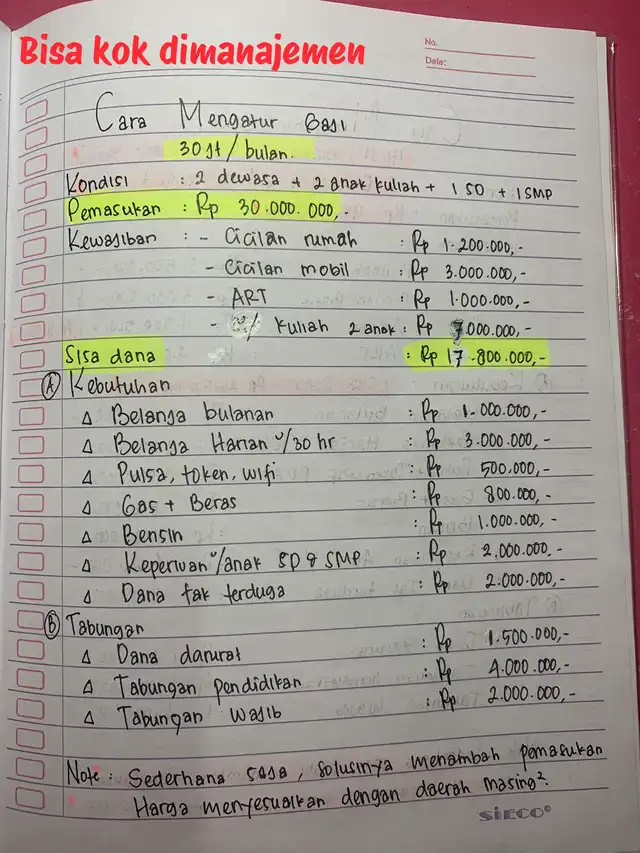 Bisa kok dimanajemen
No.
Date:
Cara Mengatur Gaji
30 jt / bulan.
Kondisi : 2 dewasa + 2 anak kuliah + 1 SD + 1 SMP
Pemasukan : Rp 30.000.000,-
Kewajiban : - Cicilan rumah : Rp 1.200.000,-
- Cicilan mobil : Rp 3.000.000,-
- ART : Rp 1.000.000,-
- U/ kuliah 2 anak : Rp 7.000.000,-
Sisa dana : Rp 17.800.000,-
A Kebutuhan
Δ Belanja bulanan : Rp 1.000.000,-
Δ Belanja Harian U/30 hr : Rp 3.000.000,-
Δ Pulsa, token, wifi : Rp 500.000,-
Δ Gas + Beras : Rp 800.000,-
Δ Bensin : Rp 1.000.000,-
Δ Keperluan U/anak SD & SMP : Rp 2.000.000.-
Δ Dana tak terduga : Rp 2.000.000.-
B Tabungan
Δ Dana darurat : Rp 1.500.000,-
Δ Tabungan pendidikan : Rp 4.000.000,-
Δ Tabungan wajib : Rp 2.000.000,-
Note : Sederhana saja, solusinya menambah pemasukan
Harga menyesuaikan dengan daerah masing².
SiECO